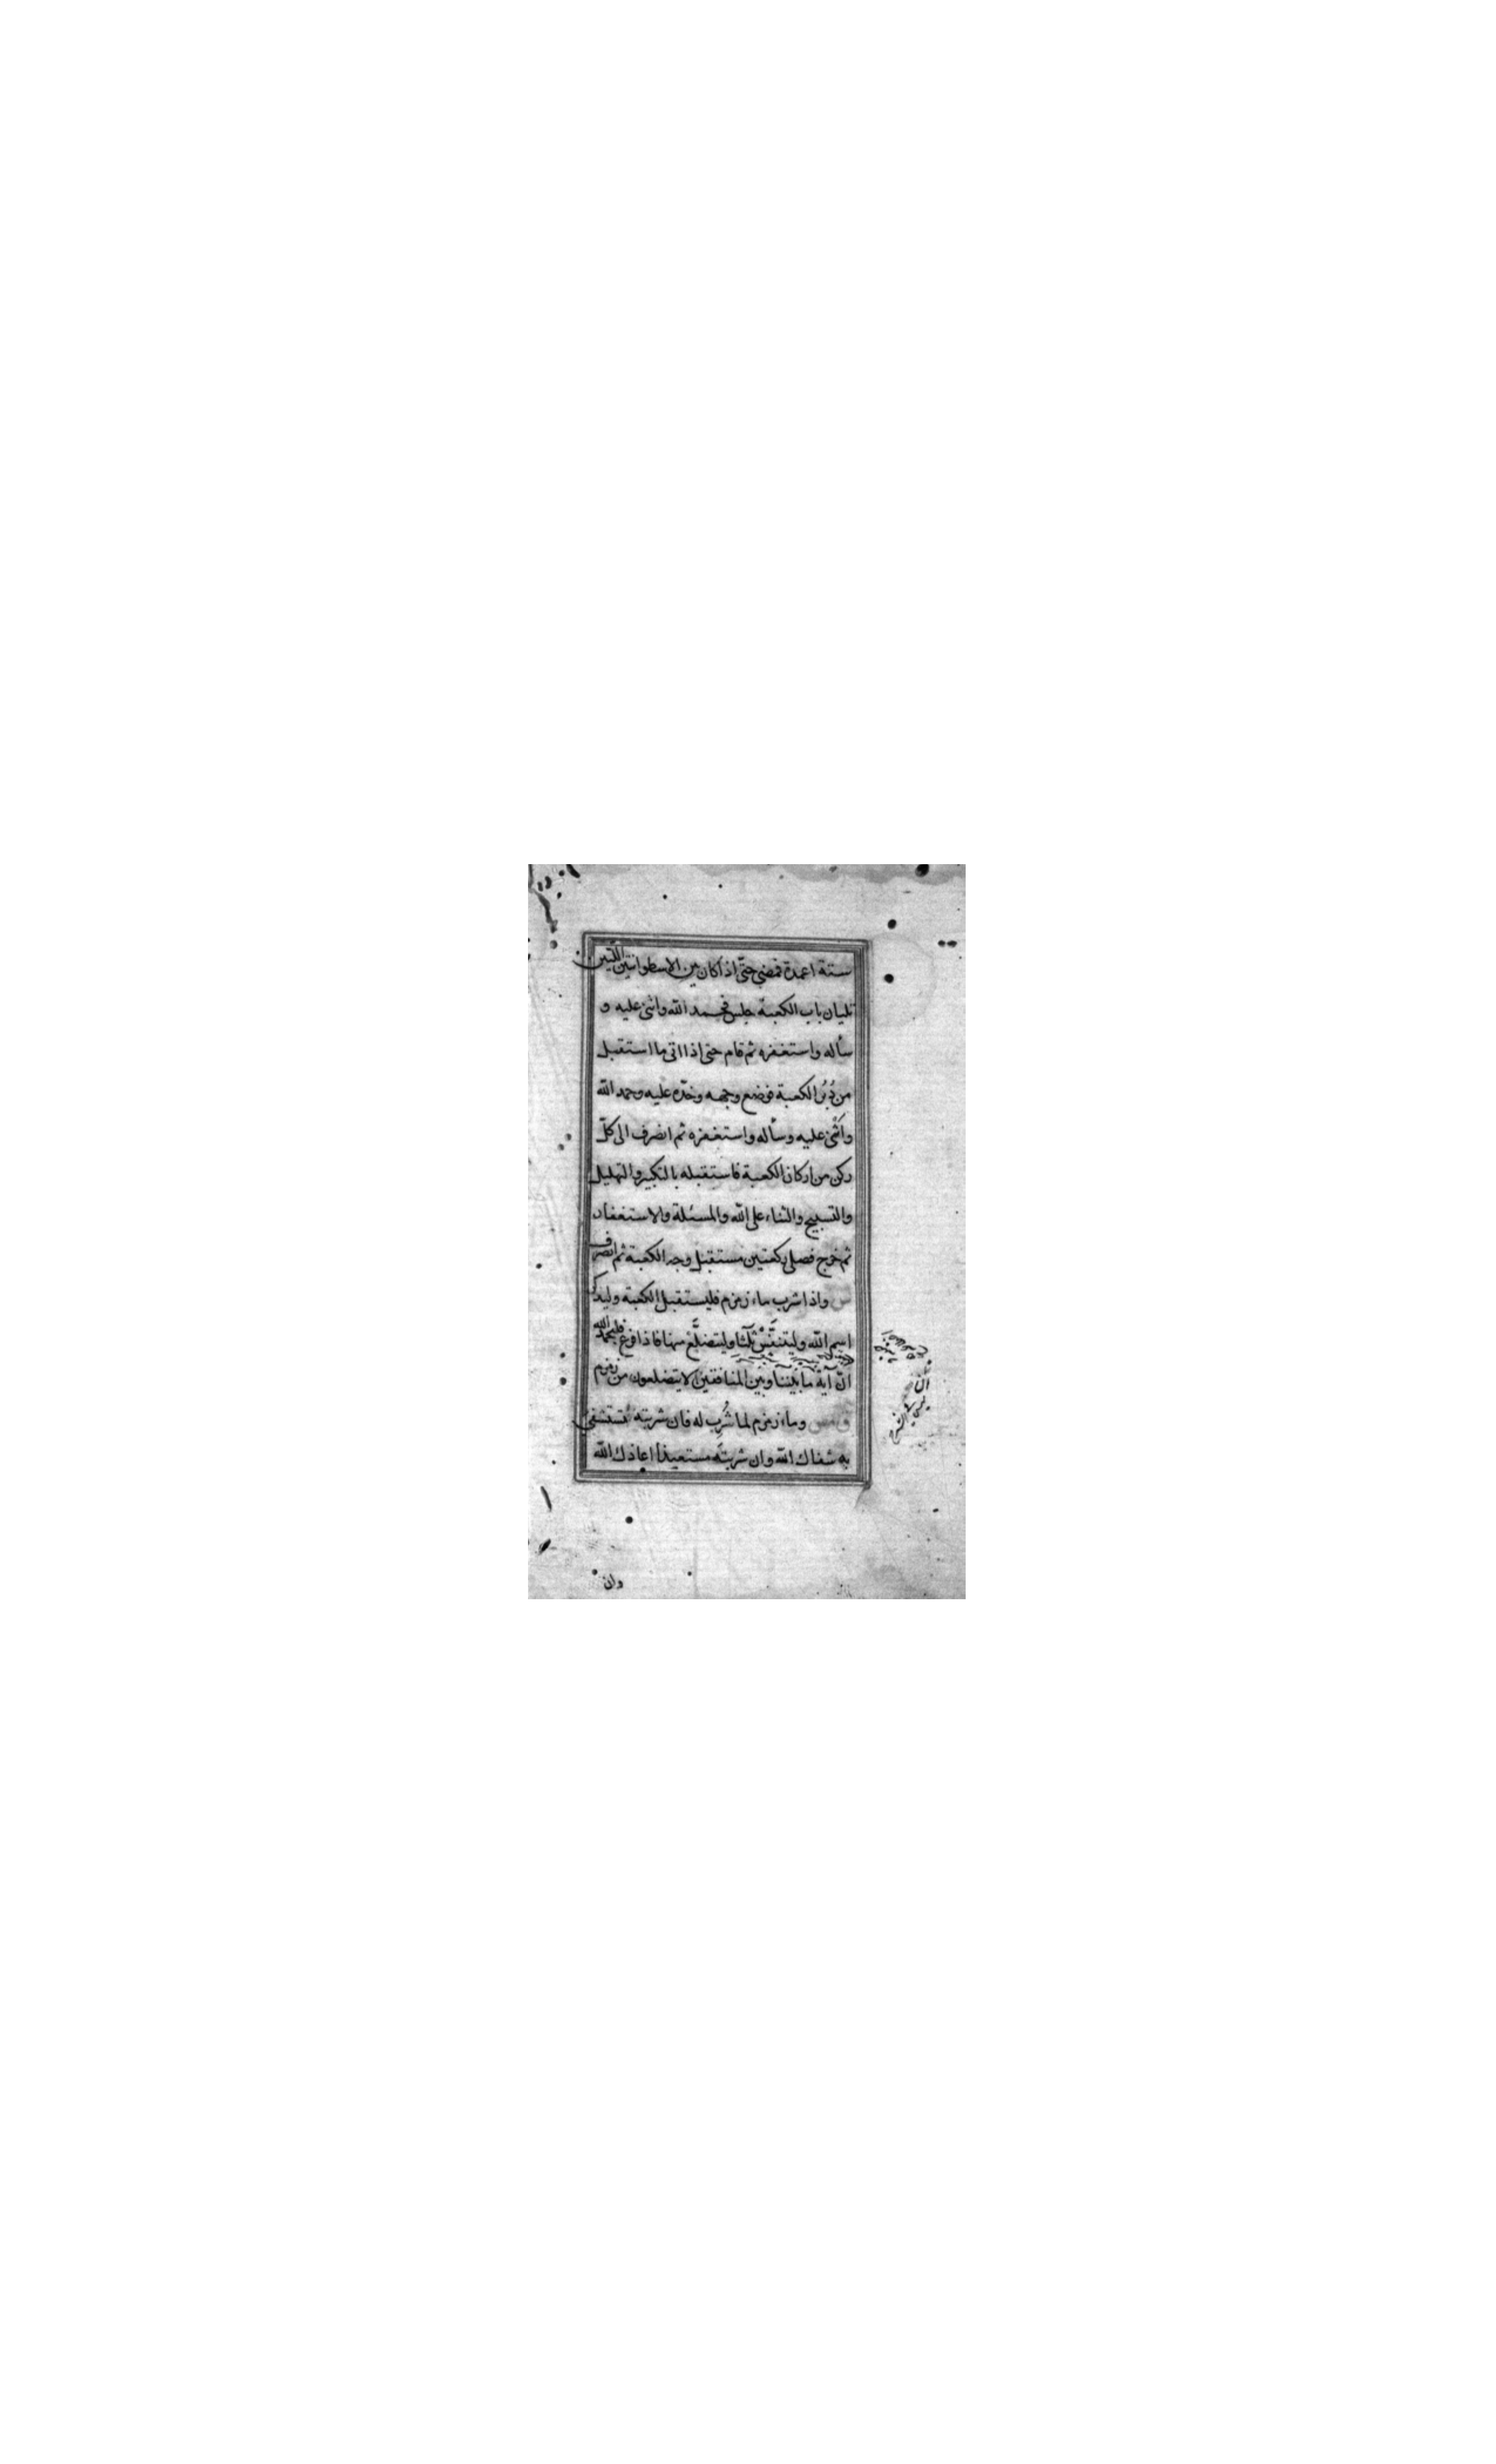 ستة اعمدة فمضى حتّى اذا كان بين الاسطوانتين اللتين
تليان باب الكعبة جلس فحمد الله واثنى عليه و
سأله واستغفره ثم قام حتى اذا اتى ما استقبل
من دُبُر الكعبة فوضع وجهه وخدّه عليه وحمد الله
واَثْنى عليه وسأله واستغفره ثم انصرف الى كلّ
ركن من اركان الكعبة فاستقبله بالتكبير والتهليل
والتسبيح والثناء على الله والمسئلة والاستغفار
ثم خرج فصلى ركعتين مستقبل وجه الكعبة ثم انصرف
س واذا شرب ماء زمزم فليستقبل الكعبة وليذكر
اسم الله وليتنفَّسْ ثلٰثا وليتضلَّع منها فاذا فرغ فليحمد الله
انّ آية ما بيننا وبين المنافقين لا يتضلعون من زمزم
ق مس وماء زمزم لما شُرِب له فان شربته تستشفى
به شفاك الله وان شربتَه مستعيذًا اعاذك الله
وان